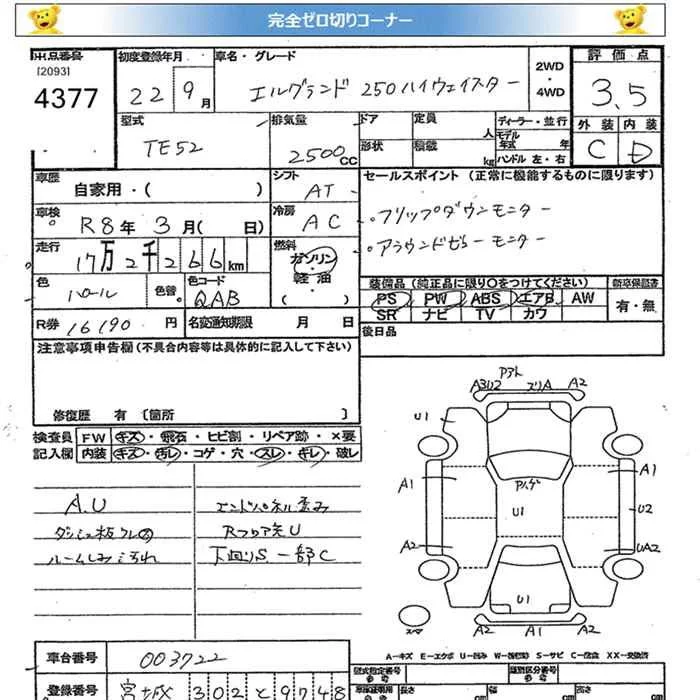 完全ゼロ切りコーナー
出品番号
[2093]
4377
初度登録年月
22年 9月
車名・グレード
エルグランド 250ハイウェイスター
2WD
・
4WD
評価点
3.5
外装 内装
C D
型式
TE52
排気量
2500cc
ドア
定員
人
形状
積載
kg
ディーラー・並行
モデル年式 年
ハンドル 左・右
車歴
自家用・( )
シフト
AT
車検
R8年 3月( 日)
冷房
AC
走行
17万2千266km
燃料
ガソリン
・
軽油
( )
色
パール
色替
色コード
QAB
R券 16190 円
名変通知期限 月 日
セールスポイント (正常に機能するものに限ります)
・フリップダウンモニター
・アラウンドビューモニター
装備品(純正品に限り○をつけてください)
PS PW ABS エアB AW
SR ナビ TV カワ
新車保証書
有・無
後日品
注意事項申告欄(不具合内容等は具体的に記入して下さい)
修復歴 有 〔箇所 〕
検査員
記入欄
FW キズ・飛石・ヒビ割・リペア跡・×要
内装 キズ・汚レ・コゲ・穴・スレ・キレ・破レ
A.U
ダッシュ板クレ
ルームしみ汚れ
エンドパネル歪み
Rフロア先U
下回りS 一部C
A3U2
スリA
A2
U1
A1
A1
U1
U2
A2
UA2
U1
スペア
A2 A1 A2
A…キズ E…エクボ U…凹み W…波(板金) S…サビ C…腐食 XX…交換済
車台番号 003722
登録番号 宮城 302 と 9748
型式指定番号
類別区分番号
参考
長さ cm
幅 cm
高さ cm